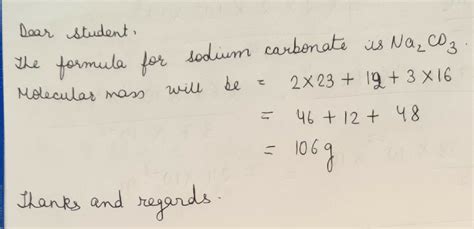 Dear student,
The formula for sodium carbonate is Na₂CO₃.
Molecular mass will be = 2×23 + 12 + 3×16
= 46 + 12 + 48
= 106g
Thanks and regards.